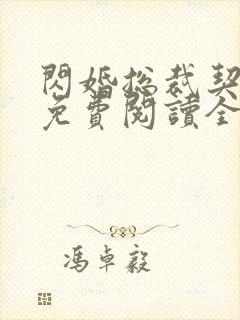 閃婚總裁契
免費閱讀全
馮卓毅